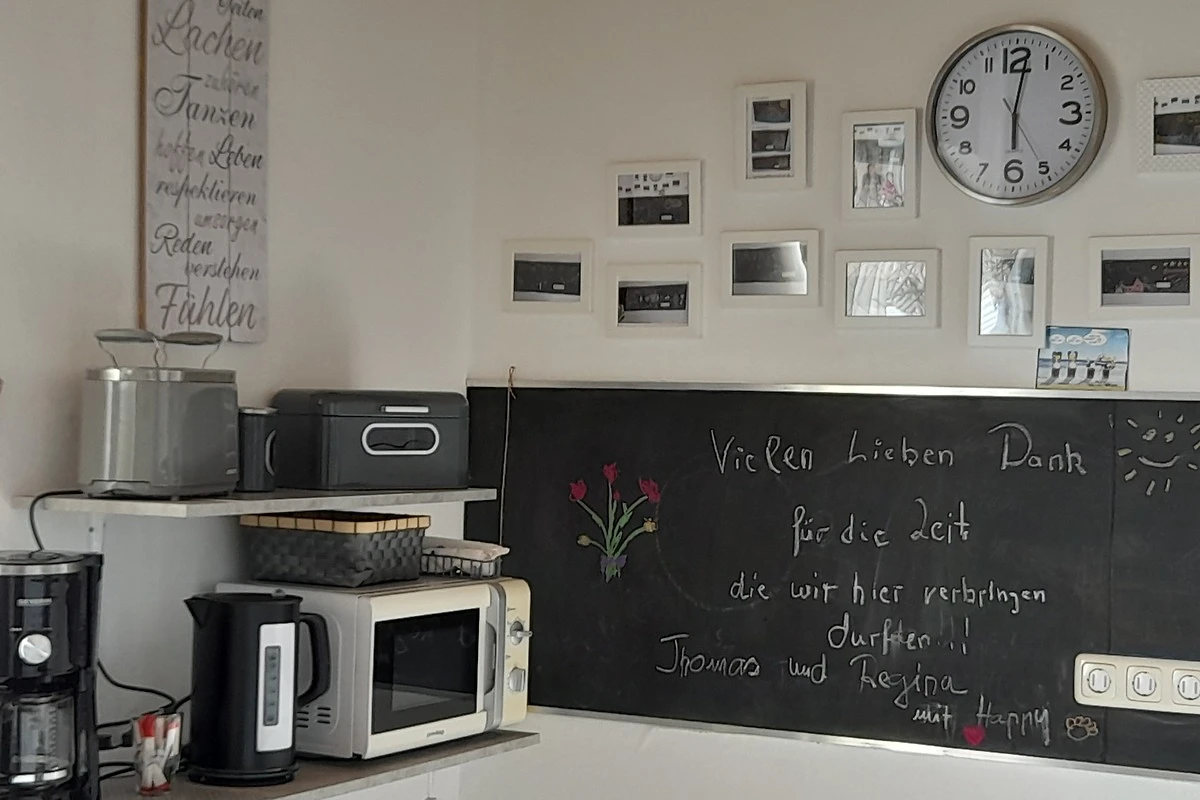 Seiten
Lachen
zuhören
Tanzen
hoffen Leben
respektieren
umsorgen
Reden
verstehen
Fühlen
12
1
2
3
4
5
6
7
8
9
10
11
Vielen Lieben Dank
für die Zeit
die wir hier verbringen
durften...!
Thomas und Regina
mit Happy